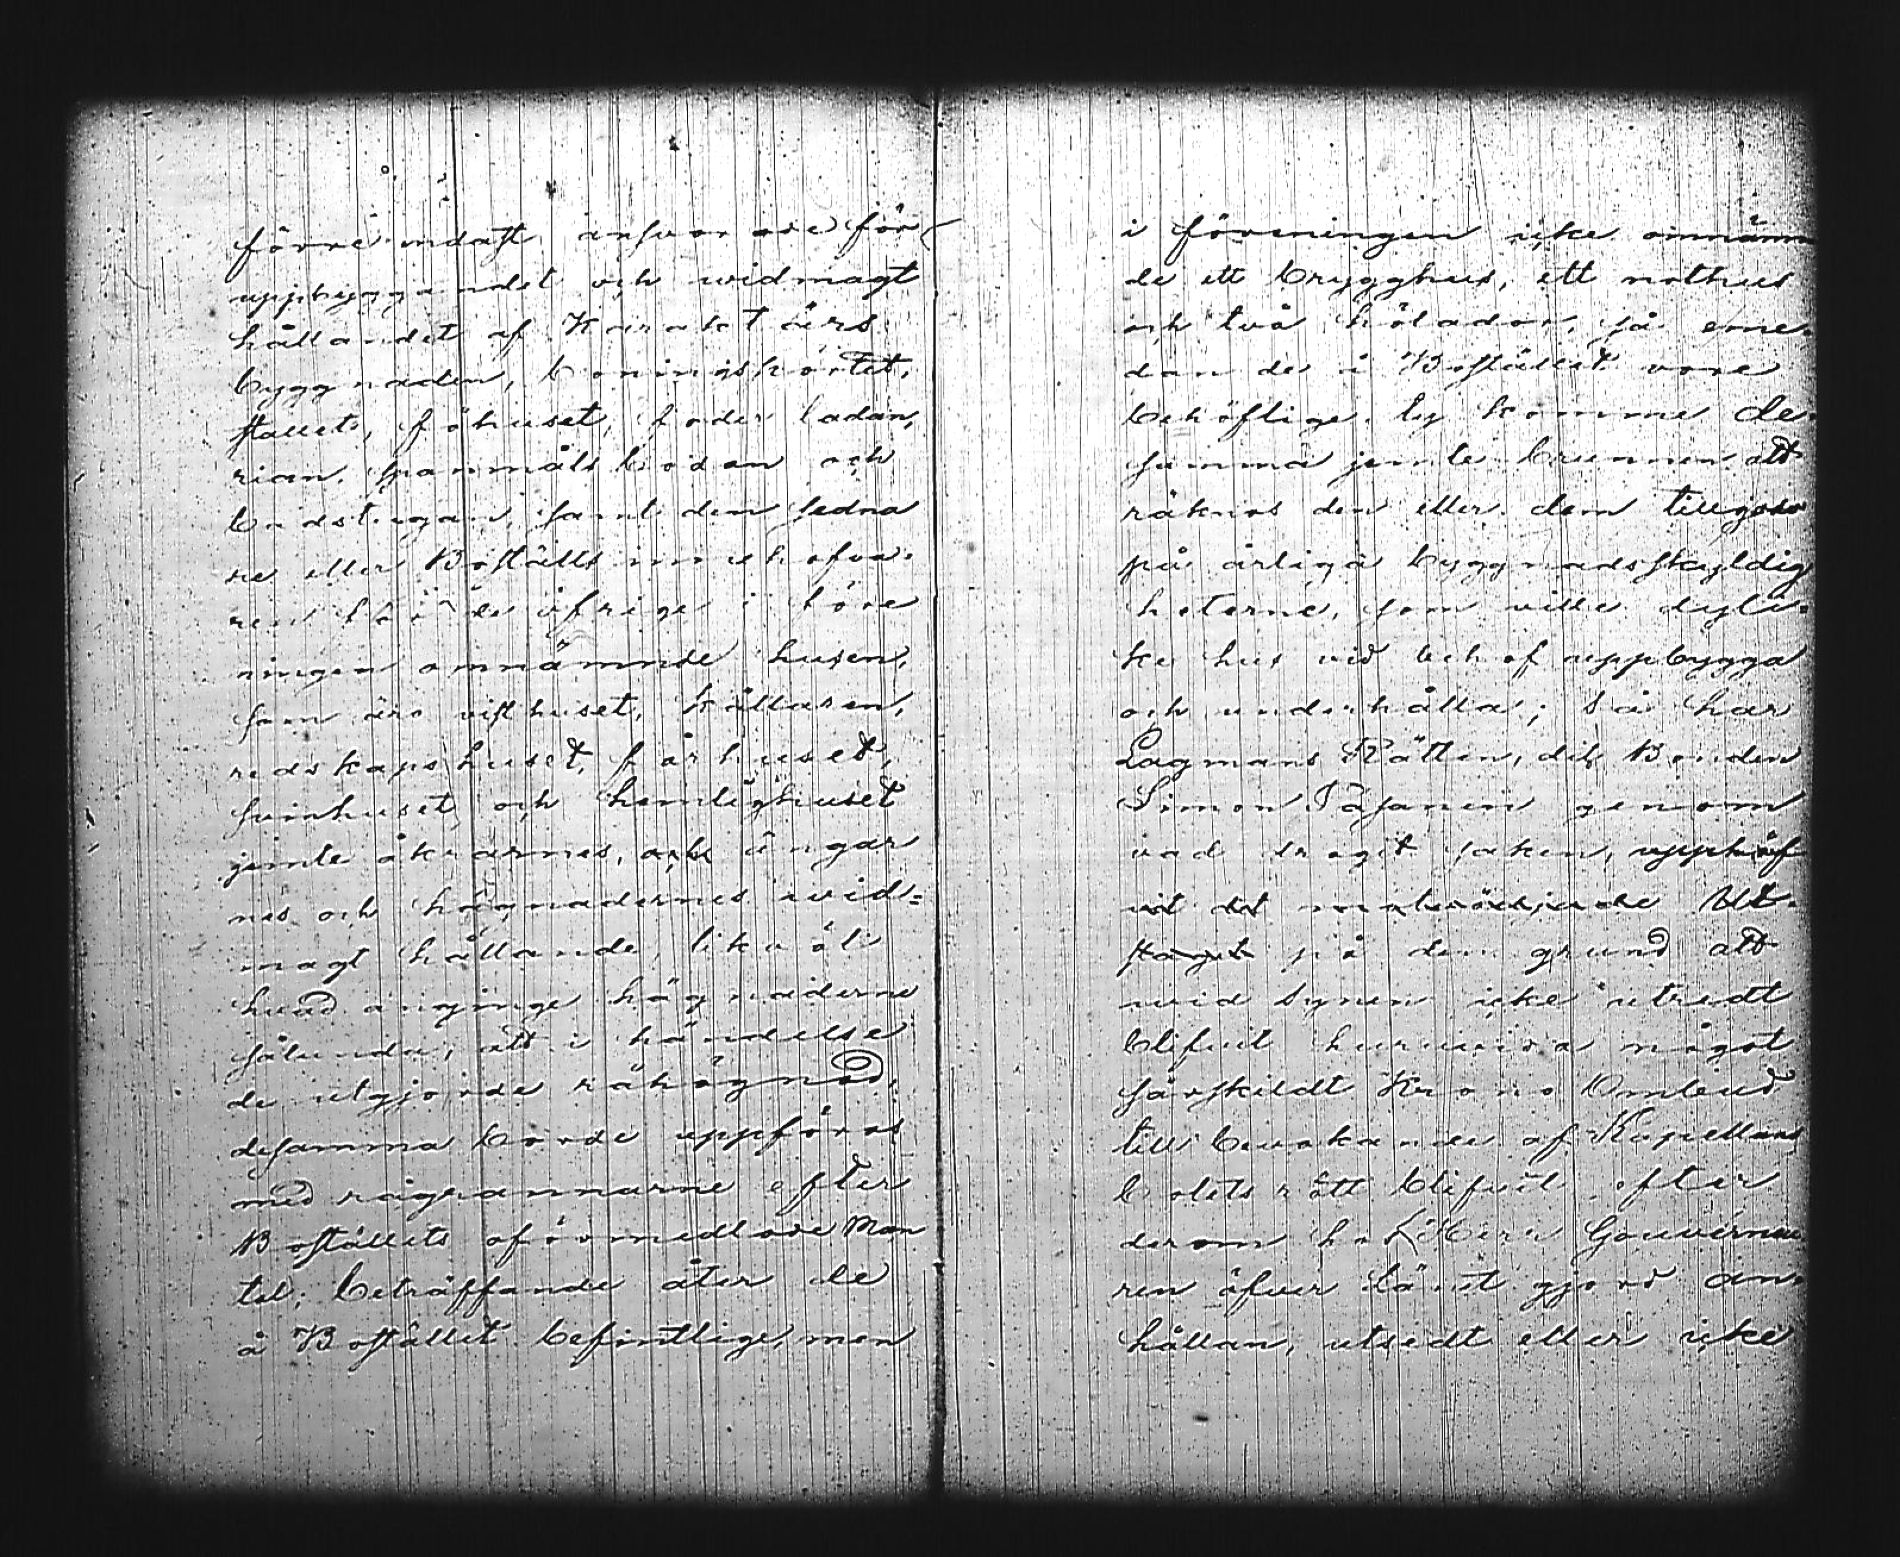 förre endast ansvarade för
uppbyggandet och widmagt
hållandet af Karaktärs
byggnaden, boningspörtet,
stallet, föhuset, foder ladan,
rian, spanmåls boden och
badstugan, samt den sedna
re eller Boställs innehafva-
ren för de öfrige i före
ningen omnämnde husen,
som äro visthuset, Källaren,
redskapshuset, fårhuset,
svinhuset och hemlighuset
jemte åkrarnes, och ängar
nes och hägnadernes wid=
magt hållande, lika
hvad anginge hägnaderne
sålunda, att i händelse
de utgjorde råhägnad,
desamma borde uppföras
med rågrannarne efter
Boställets oförmedlade Man
tal; beträffande åter de
å Bostället befintlige, men
i föreningen icke omnämn
de ett brygghus, ett nothus
och två hölador, så eme-
dan de å Bostället vore
behöflige, ej komme de-
samma jemte brunnen att
räknas den eller dem tillgodo
på årliga byggnadsskyldig
heterne, som ville dyli-
ka hus vid behof uppbygga
och underhålla; så har
Lagmans Rätten, dit Bonden
Simon genom
vad dragit saken, upphäf
vit det Ut-
slaget på den grund att
wid synen icke utredt
blifvit huruvida något
särskildt Krono Ombud
till bevakande af Kapellans
bolets rätt blifvit, efter
derom hos Herr Gouverneu
ren öfver Länet gjord an-
hållan, utsedt eller icke